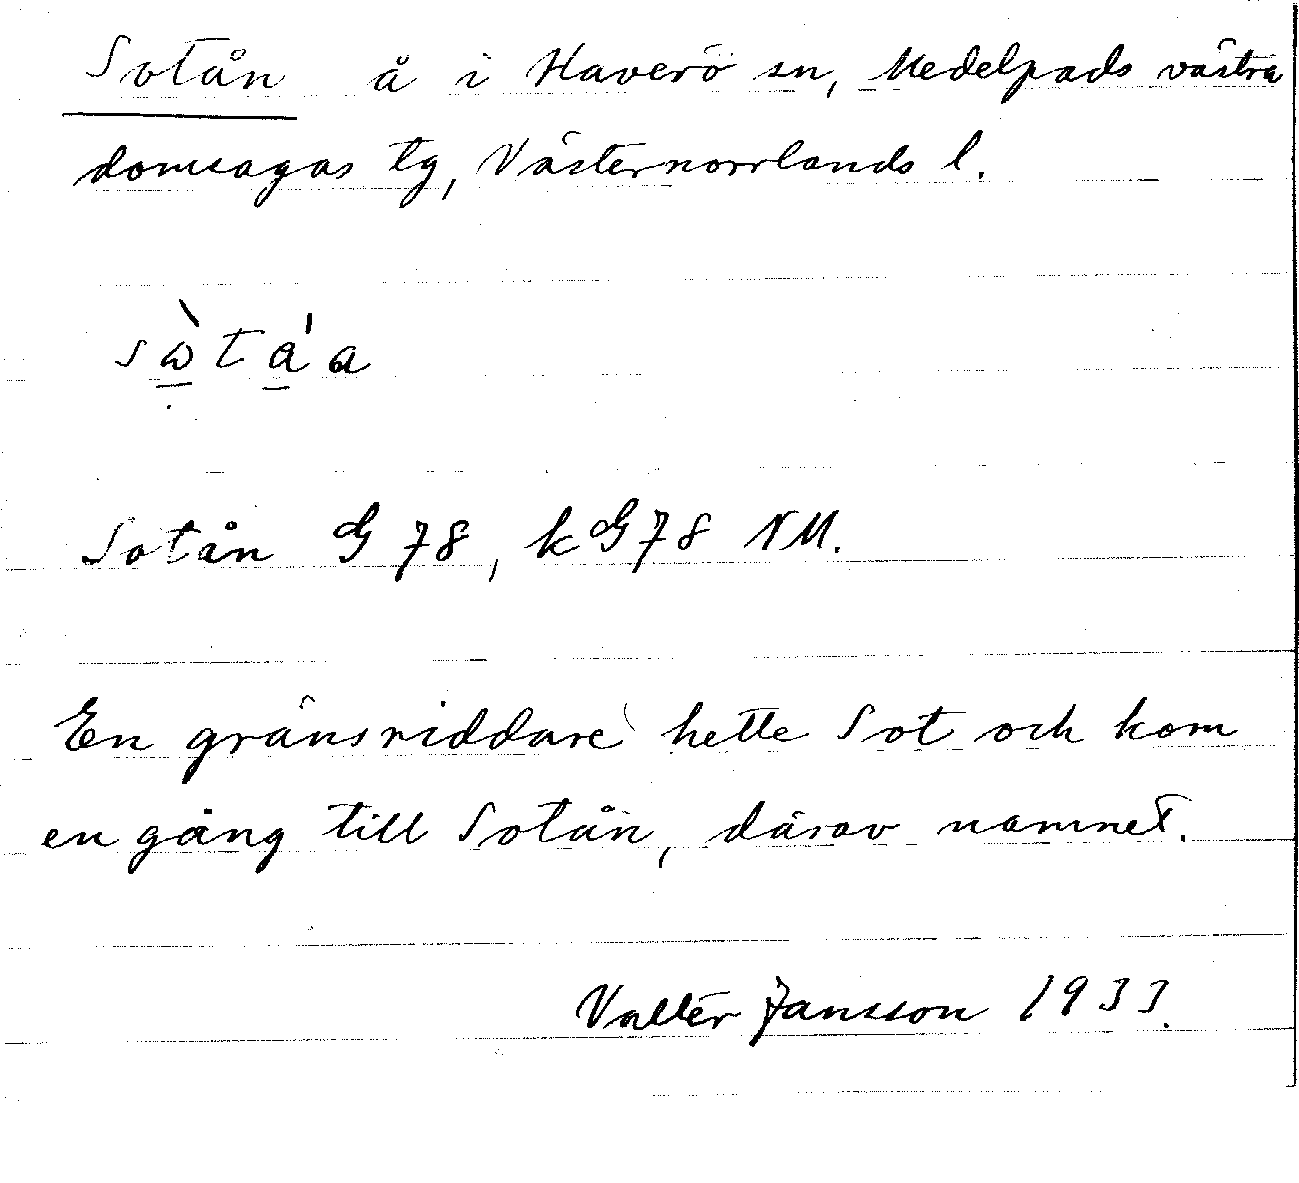 Sotån å i Haverö sn, Medelpads västra
domsagas tg, Västernorrlands l.
sὼ̱tá̱a
Sotån G 78, kG 78 NM.
En gränsriddare hette Sot och kom
en gång till Sotån, därav namnet.
Valter Jansson 1933.